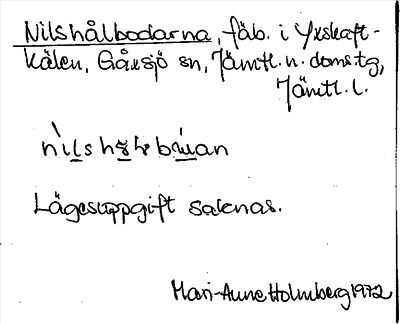 Nilshålbodarna, fäb. i Yxskaft-
kälen, Gåxsjö sn, Jämtl. n. doms tg,
Jämtl. l.
Lägesuppgift saknas.
Mari-Anne Holmberg 1972